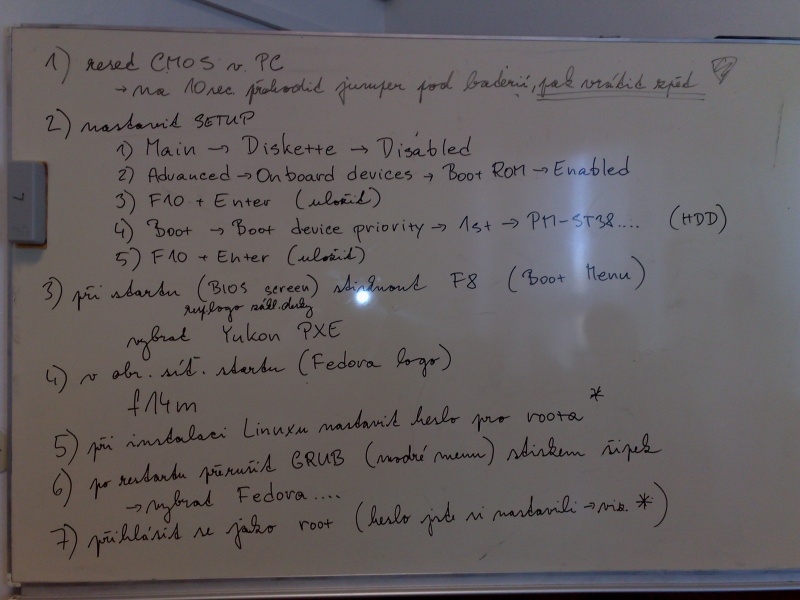 1) reset CMOS v PC
→ na 10 sec. přehodit jumper pod baterií, pak vrátit zpět
2) nastavit SETUP
1) Main → Diskette → Disabled
2) Advanced → Onboard devices → Boot ROM → Enabled
3) F10 + Enter (uložit)
4) Boot → Boot device priority → 1st → PM-ST38.... (HDD)
5) F10 + Enter (uložit)
3) při startu (BIOS screen) stisknout F8 (Boot Menu)
resp. logo zákl. desky
vybrat Yukon PXE
4) v obr. síť. startu (Fedora logo)
f14m
5) při instalaci Linuxu nastavit heslo pro roota *
6) po restartu přerušit GRUB (modré menu) stiskem šipek
→ vybrat Fedora....
7) přihlásit se jako root (heslo jste si nastavili → viz. *)